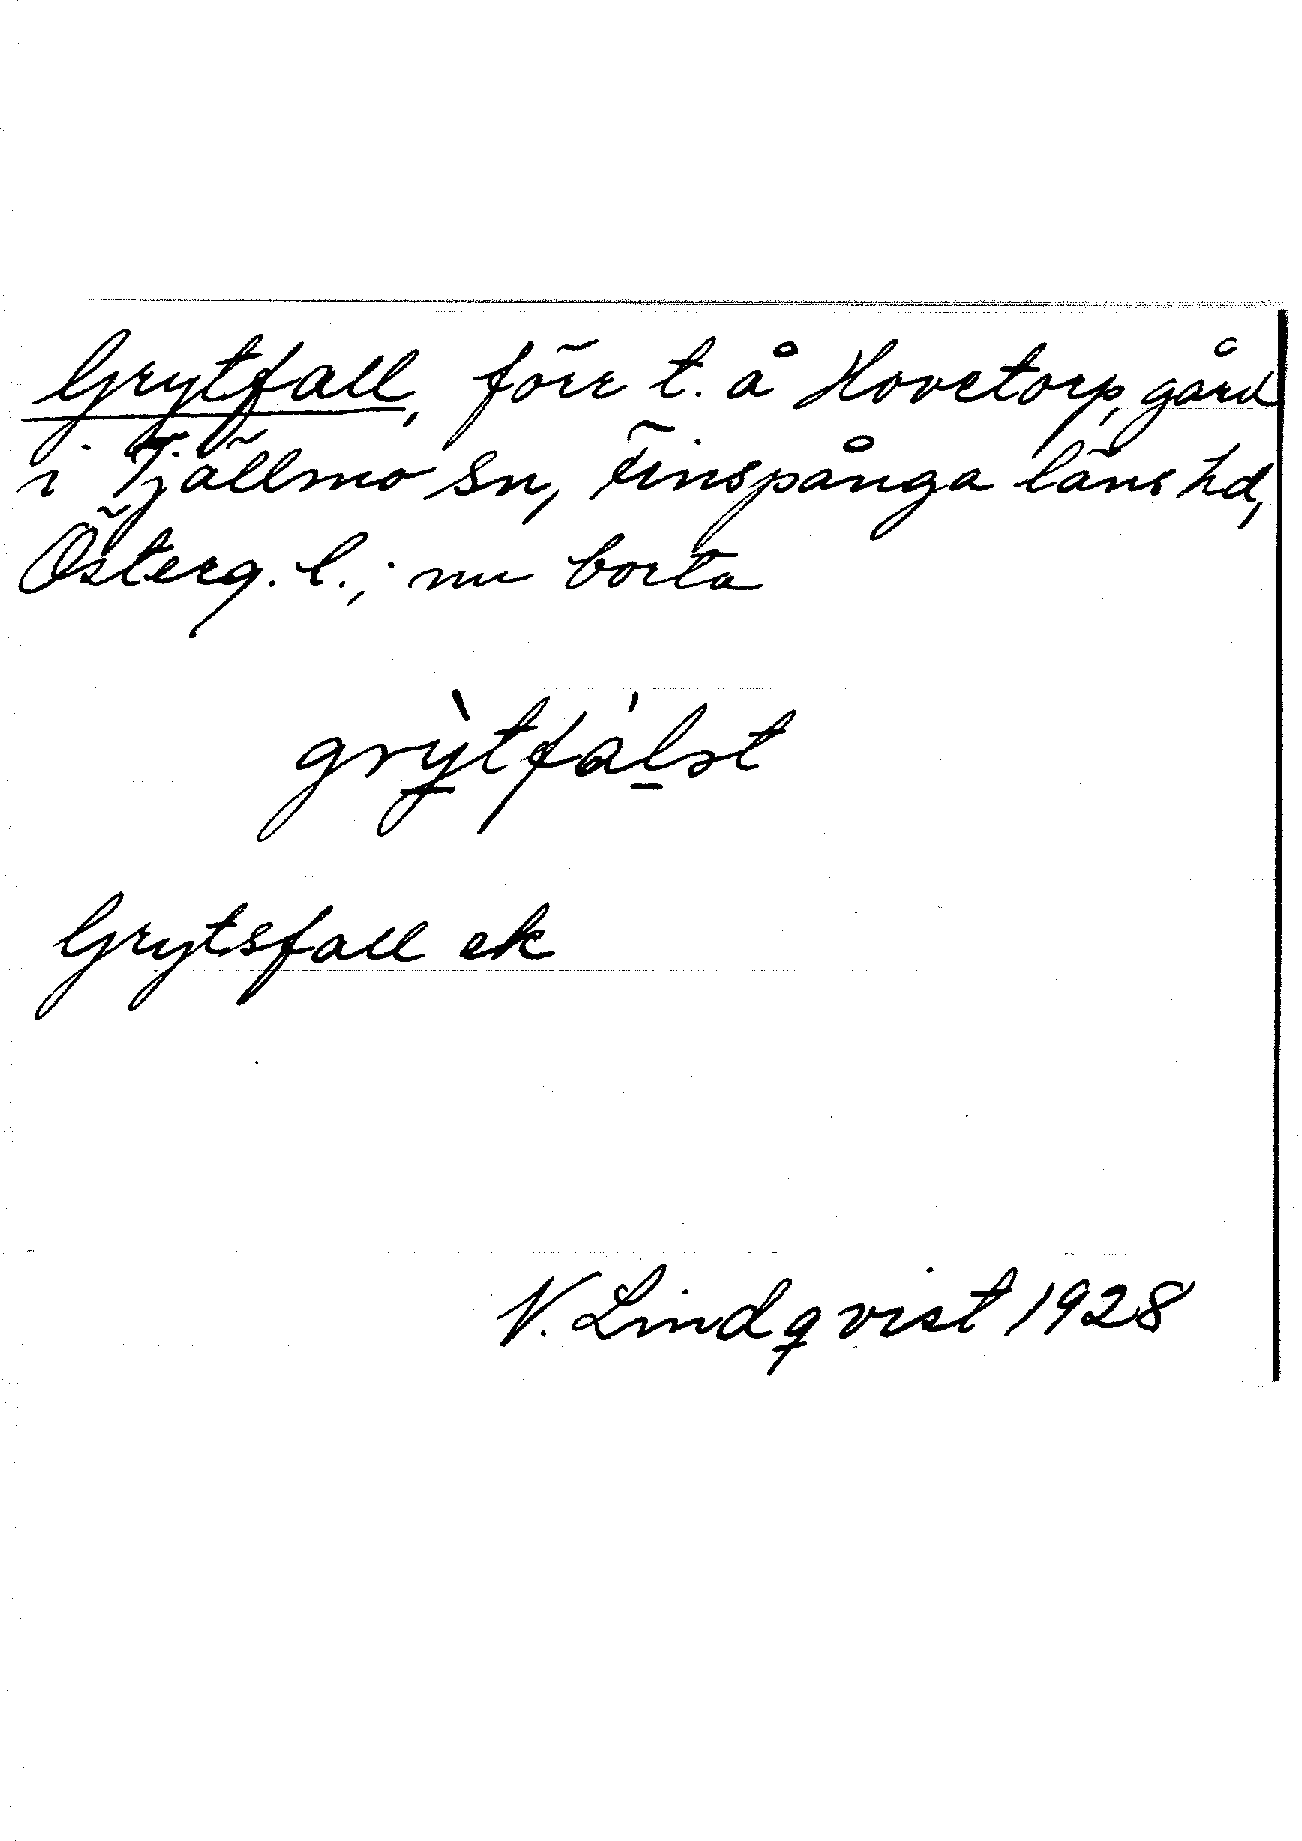 Grytfall, förr t. å Hovetorp, gård
i Tjällmo sn, Finspånga läns hd,
Österg. l.; nu borta
grỳtfàlst
Grytsfall ek
N. Lindqvist 1928